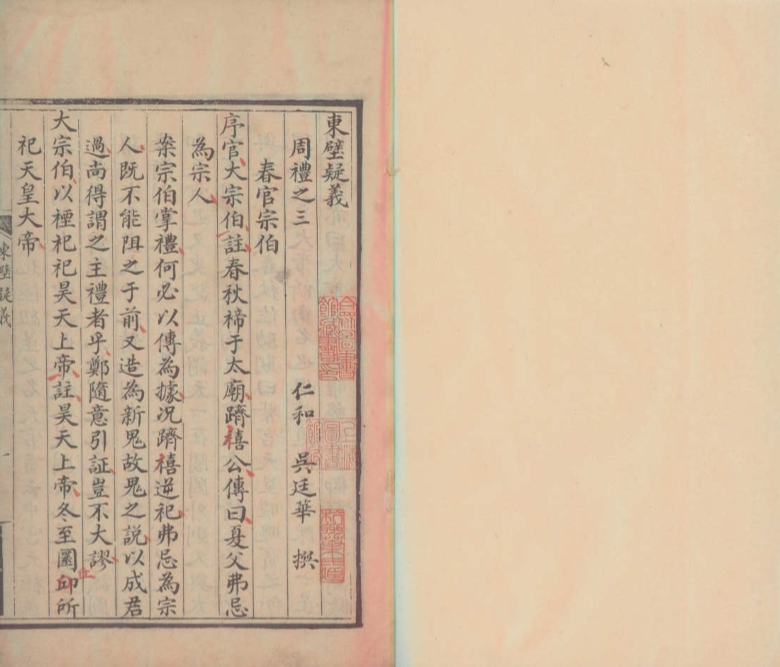 東壁疑義
周禮之三　仁和　吳廷華　撰
春官宗伯
序官大宗伯註春秋禘于太廟躋僖公傳曰夏父弗忌
為宗人
案宗伯掌禮何必以傳為據况躋僖逆祀弗忌為宗
人既不能阻之于前又造為新鬼故鬼之說以成君
過尚得謂之主禮者乎鄭隨意引証豈不大謬
大宗伯以禋祀祀昊天上帝註昊天上帝冬至圜邱所
祀天皇大帝
東壁疑義